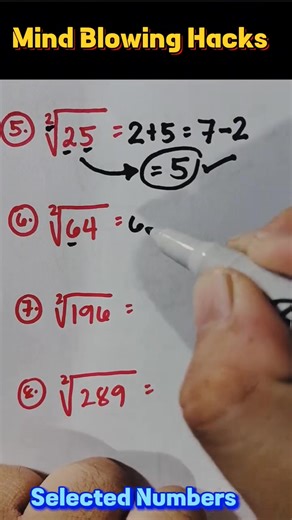 Mind Blowing Hacks
5. ²√25 = 2+5 = 7-2
= 5 ✓
6. ²√64 = 6
7. ²√196 =
8. ²√289 =
Selected Numbers